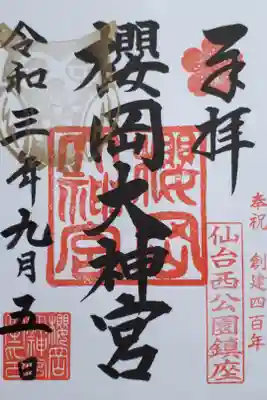 奉拝
奉祝 創建四百年
仙台西公園鎮座
櫻岡大神宮
櫻岡神宮
令和三年九月五日